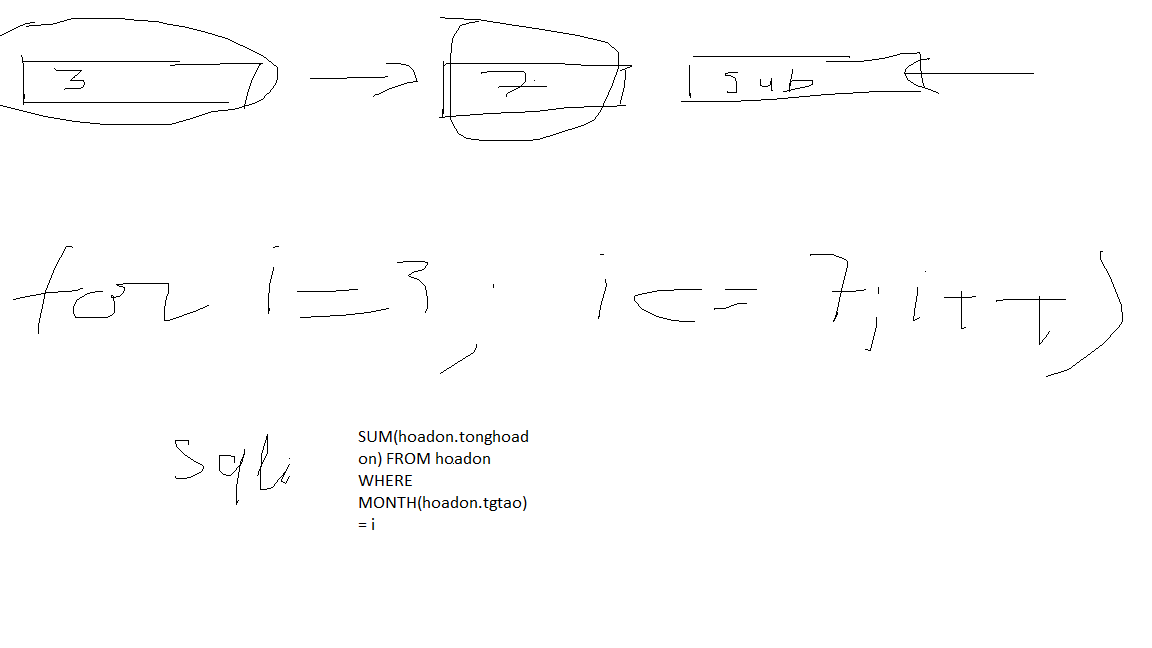 3 7 sub
for i = 3 ; i <= 7; i++)
sqli
SUM(hoadon.tonghoad
on) FROM hoadon
WHERE
MONTH(hoadon.tgtao)
= i